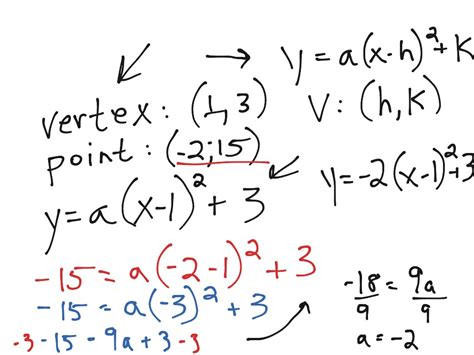 y = a(x-h)² + K
vertex: (1, 3)
V: (h, K)
point: (-2; 15)
y = a(x-1)² + 3
y = -2(x-1)² + 3
-15 = a(-2-1)² + 3
-15 = a(-3)² + 3
-3 -15 - 9a + 3 -3
-18 = 9a
9 9
a = -2